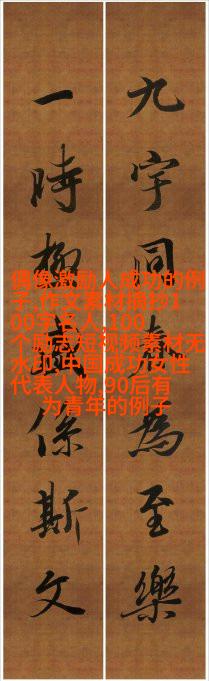 九宇同為至樂
一時係斯文
偶像激励人成功的例
子,作文素材摘抄1
00字名人,100
个励志短视频素材无
水印,中国成功女性
代表人物,90后有
为青年的例子